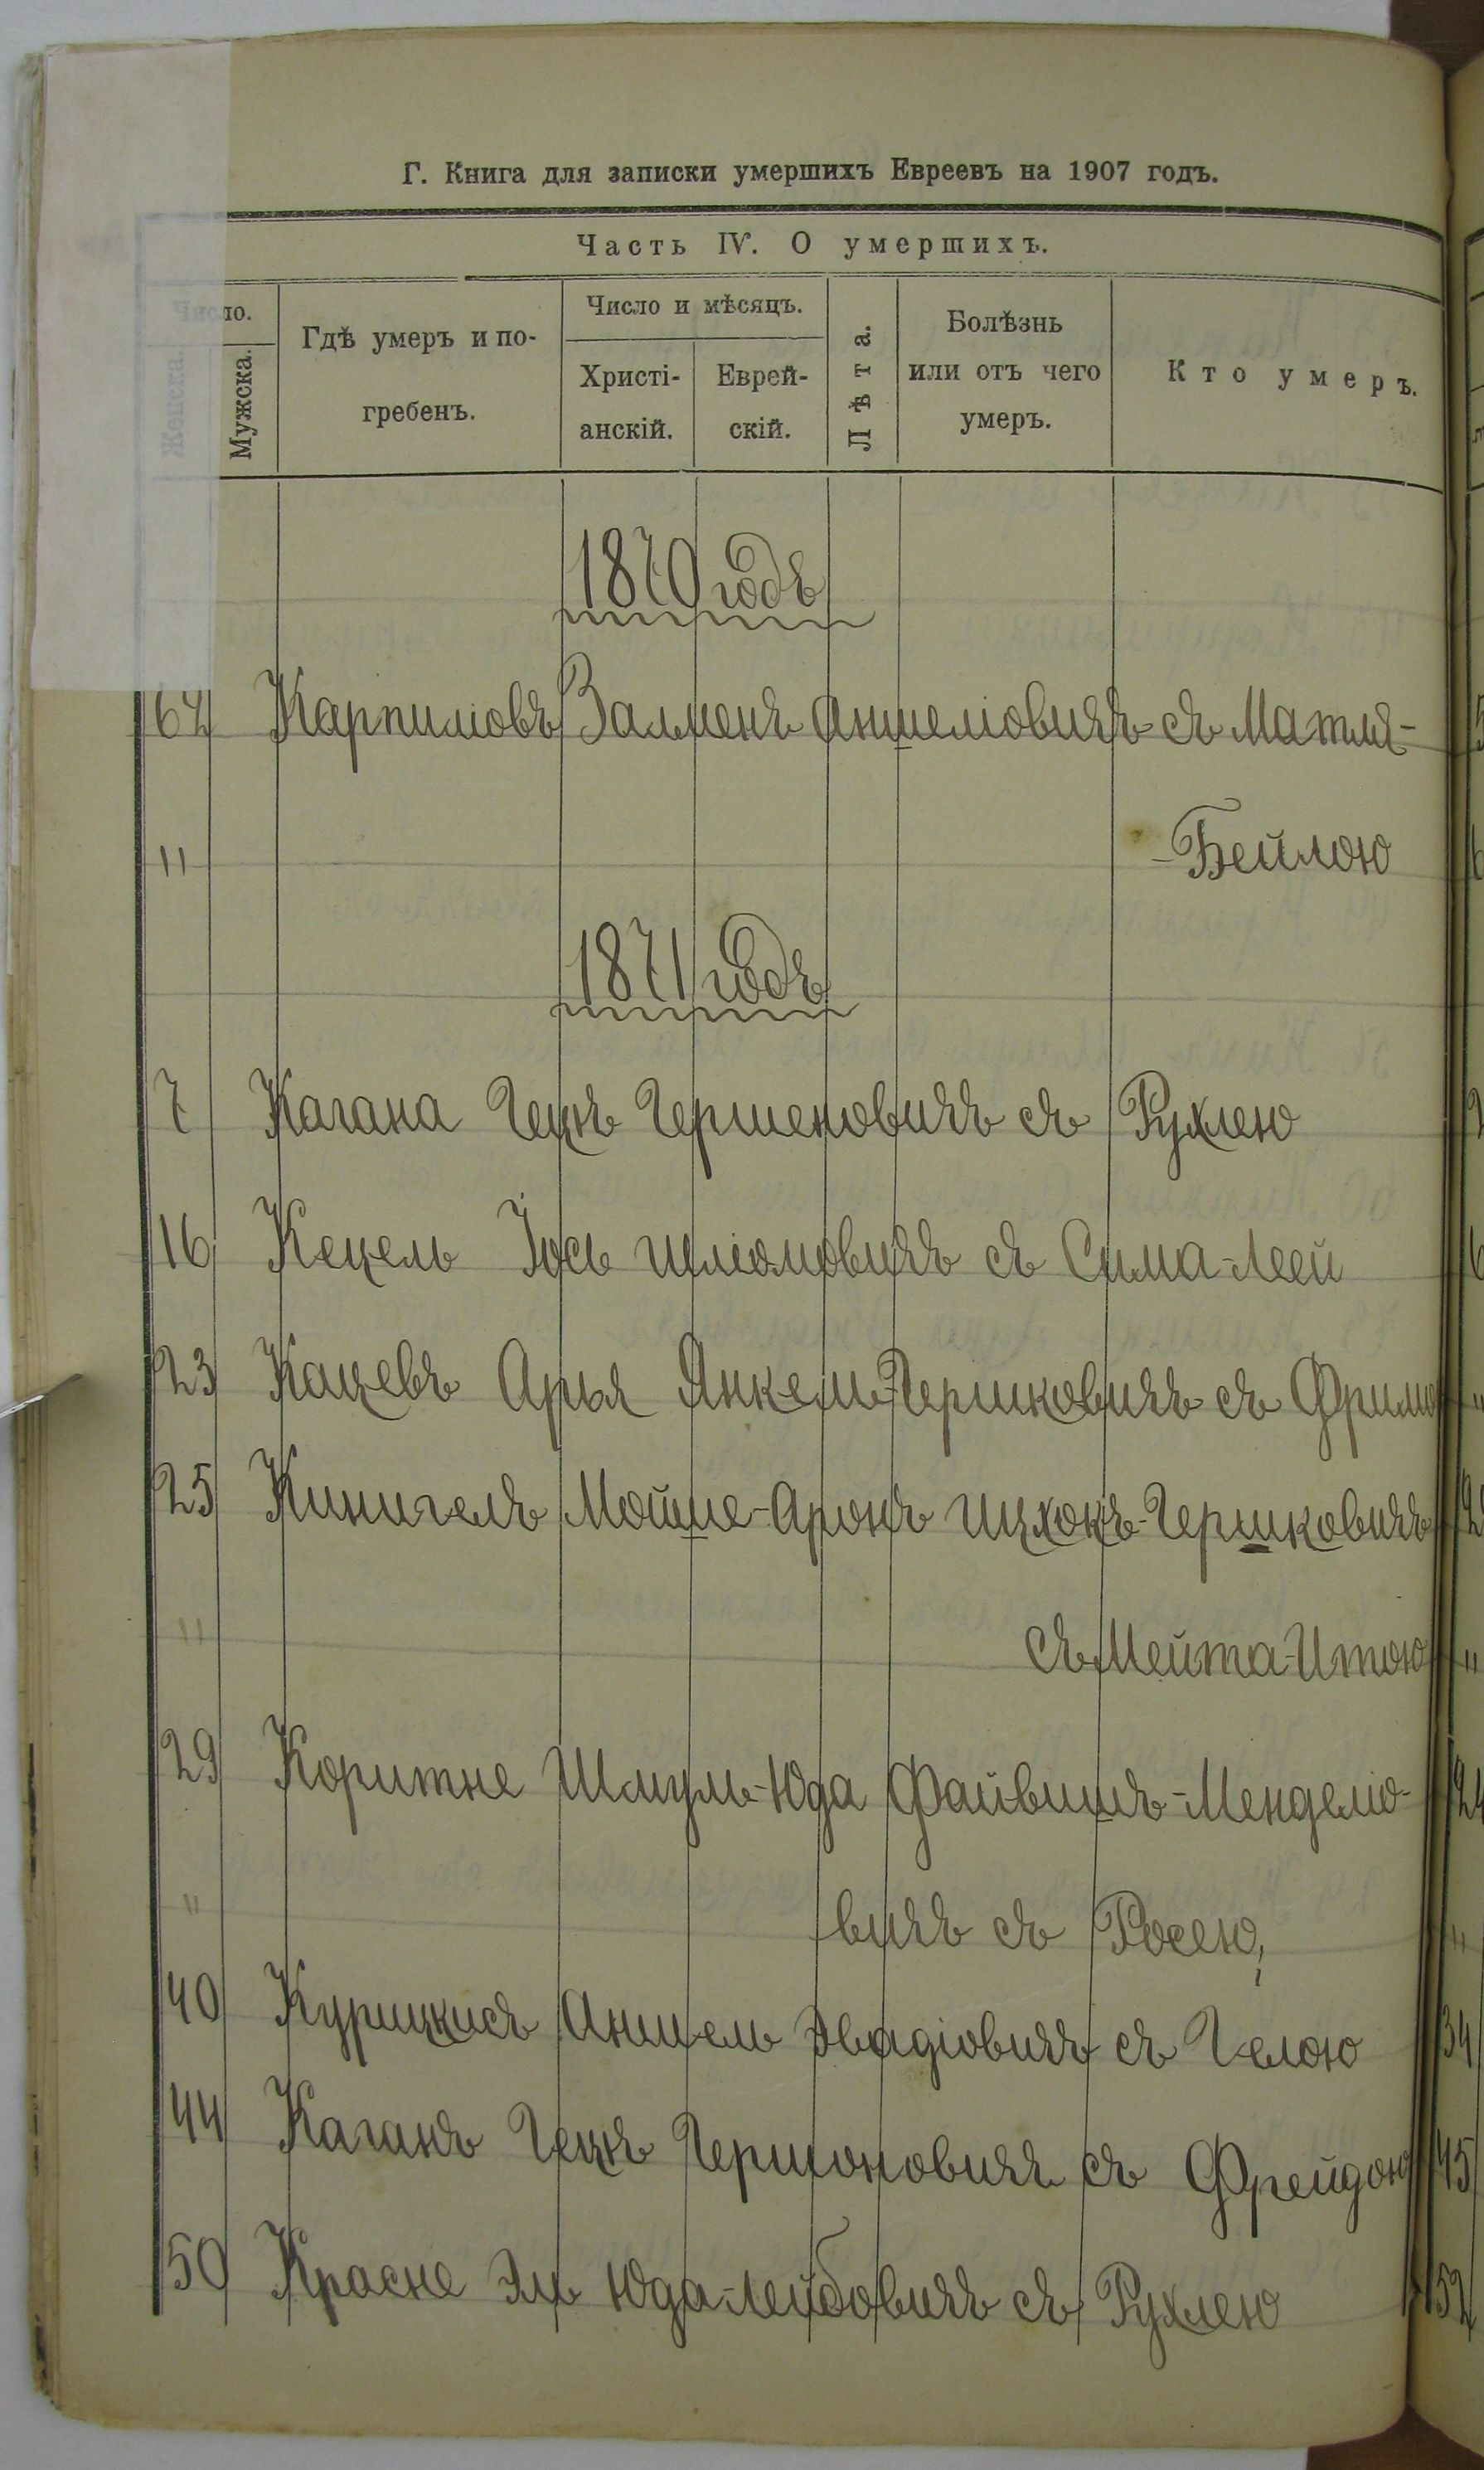 Г. Книга для записки умершихъ Евреевъ на 1907 годъ.
Часть IV. О умершихъ.
Число.
Женска.
Мужска.
Гдѣ умеръ и по-
гребенъ.
Число и мѣсяцъ.
Христі-
анскій.
Еврей-
скій.
Лѣта.
Болѣзнь
или отъ чего
умеръ.
Кто умеръ.
1870 годъ
64 Карпиловъ Залменъ Аншеліовичъ съ Матля-
" -Бейлою
1871 годъ
7 Кагана Гецъ Гершеновичъ съ Рухлею
16 Кецель Іось Шліомовичъ съ Сима-Леей
23 Кацевъ Арья Янкель-Гершковичъ съ Фримо
25 Кинигель Мойше-Аронъ Ицхокъ-Гершковичъ
" съ Мейта-Итою
29 Коритне Шмуль-Юда Файвишъ-Менделіо-
" вичъ съ Росею,
40 Курицкисъ Аншель Эвадіовичъ съ Гелою
44 Каганъ Гецъ Гершоновичъ съ Фрейдою
50 Красне Эль Юда-Лейбовичъ съ Рухлею